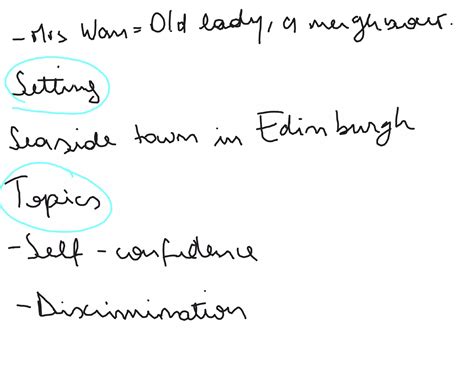 - Mrs Wan = Old lady, a neighbour.
Setting
Seaside town in Edinburgh
Topics
- Self - confidence
- Discrimination